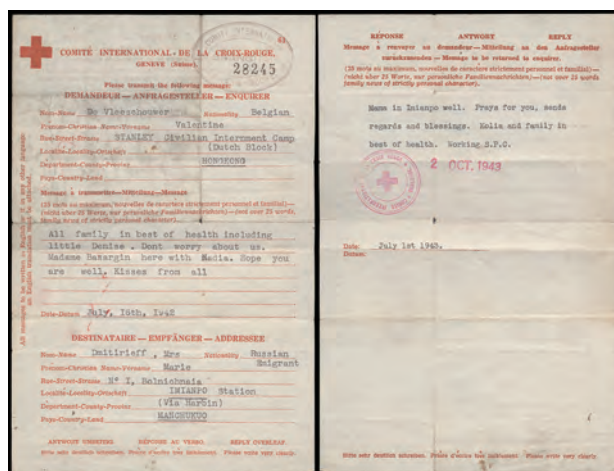 COMITÉ INTERNATIONAL DE LA CROIX-ROUGE
GENÈVE (Suisse)
28245
Please transmit the following message:
DEMANDEUR — ANFRAGESTELLER — ENQUIRER
Nom-Name De Vleeschouwer Nationality Belgian
Prénom-Christian Name-Vorname Valentine
Rue-Street-Strasse STANLEY Civilian Internment Camp
Localité-Locality-Ortschaft (Dutch Block)
Department-County-Provinz HONGKONG
Pays-Country-Land
Message à transmettre — Mitteilung — Message
(25 mots au maximum, nouvelles de caractère strictement personnel et familial) —
(nicht über 25 Worte, nur persönliche Familiennachrichten) — (not over 25 words,
family news of strictly personal character).
All family in best of health including
little Denise . Dont worry about us.
Madame Bazargin here with Nadia. Hope you
are well. Kisses from all
Date-Datum July, 15th, 1942
DESTINATAIRE — EMPFÄNGER — ADDRESSEE
Nom-Name Dmitirieff , Mrs Nationality Russian
Emigrant
Prénom-Christian Name-Vorname Marie
Rue-Street-Strasse N° I, Bolnichnaia
Localité-Locality-Ortschaft IMIANPO Station
Department-County-Provinz (Via Harbin)
Pays-Country-Land MANCHUKUO
ANTWORT UMSEITIG. RÉPONSE AU VERSO. REPLY OVERLEAF.
Bitte sehr deutlich schreiben. Prière d'écrire très lisiblement. Please write very clearly.
RÉPONSE ANTWORT REPLY
Message à renvoyer au demandeur — Mitteilung an den Anfragesteller
zurückzusenden — Message to be returned to enquirer.
(25 mots au maximum, nouvelles de caractère strictement personnel et familial) —
(nicht über 25 Worte, nur persönliche Familiennachrichten) — (not over 25 words
family news of strictly personal character).
Mama in Inianpo well. Prays for you, sends
regards and blessings. Kolia and family in
best of health. Working S.P.C.
2 OCT. 1943
Date: July 1st 1943.
Datum:
Bitte sehr deutlich schreiben. Prière d'écrire très lisiblement. Please write very clearly.